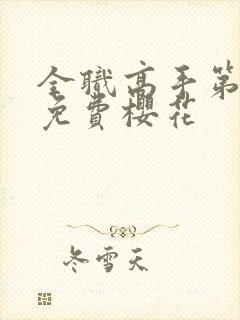 全職高手第
免費櫻花
冬雪天